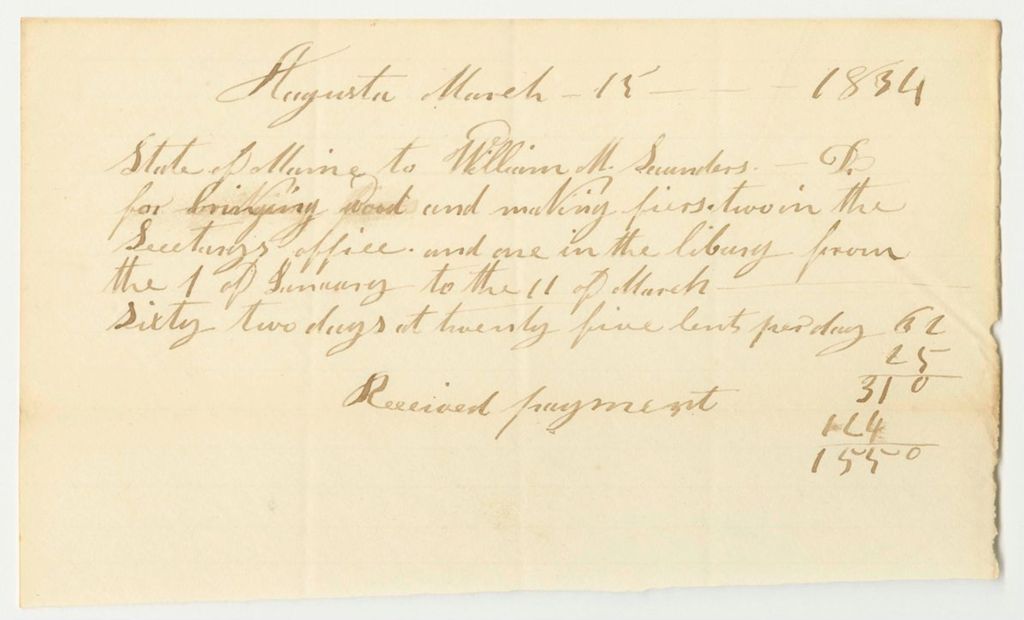 Augusta March - 15 - - - 1834
State of Maine to William M. Saunders. - Dr
for bringing wood and making fiers. two in the
Secetarys office. and one in the libary from
the 1 of January to the 11 of March
Sixty two days at twenty five Cents per day 62
25
310
Received payment
124
1550